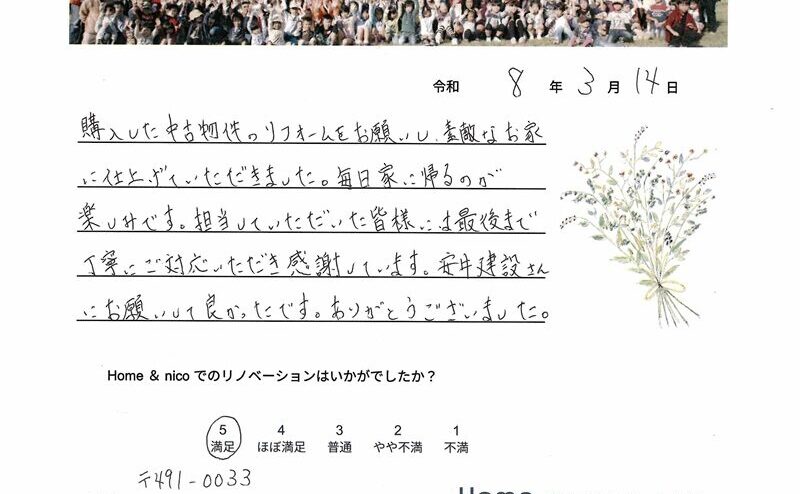 令和 8 年 3 月 14 日
購入した中古物件のリフォームをお願いし、素敵なお家
に仕上げていただきました。毎日家に帰るのが
楽しみです。担当していただいた皆様には最後まで
丁寧にご対応いただき感謝しています。安井建設さん
にお願いして良かったです。ありがとうございました。
Home & nico でのリノベーションはいかがでしたか？
5 4 3 2 1
満足 ほぼ満足 普通 やや不満 不満
〒491-0033
Home